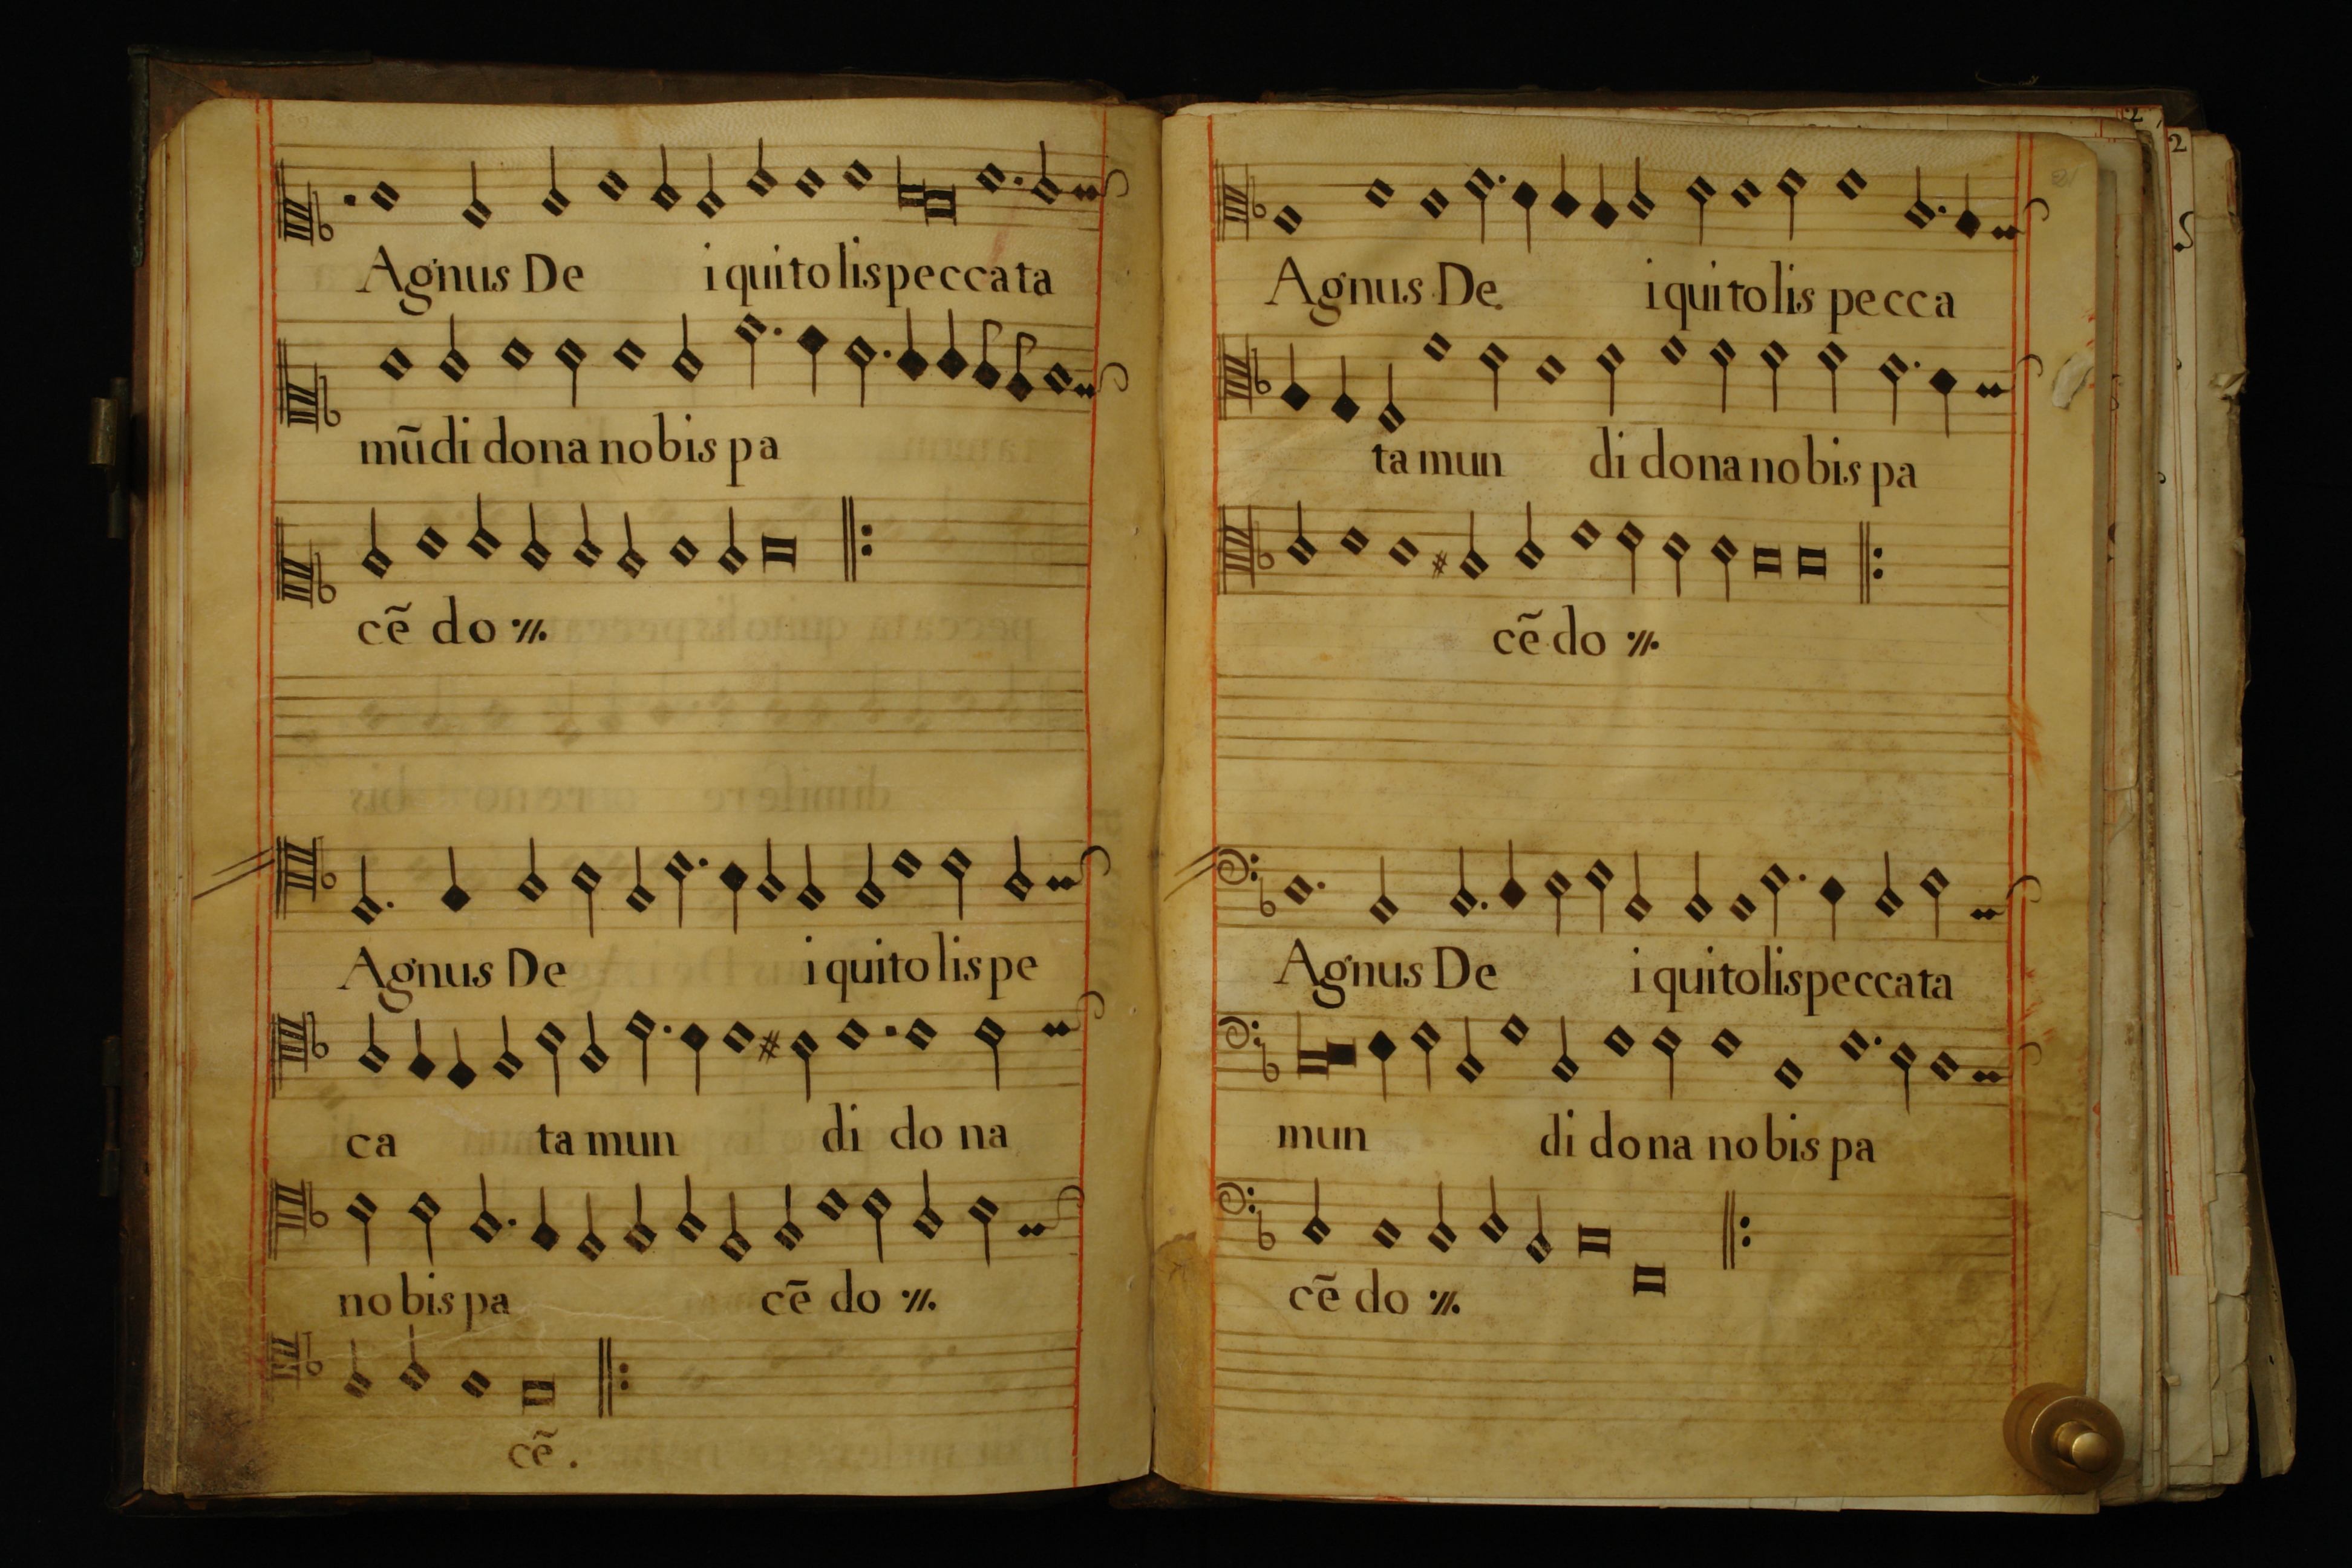 Agnus De i qui to lis pecca ta
mũdi dona nobis pa
cẽ do ·//.
Agnus De i qui to lis pe
ca ta mun di do na
no bis pa cẽ do ·//.
cẽ .
Agnus De i qui to lis pe cca
ta mun di dona no bis pa
cẽ do ·//.
Agnus De i qui to lis peccata
mun di do na no bis pa
cẽ do ·//.